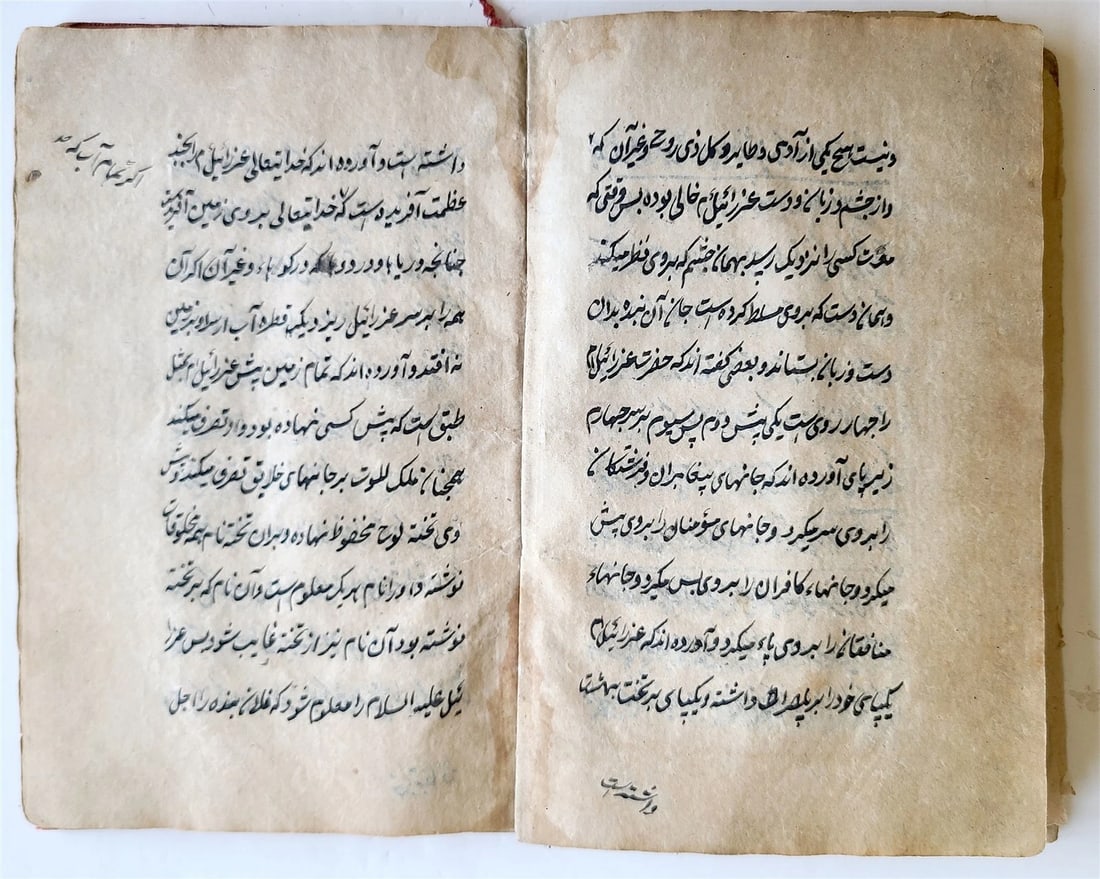 و نیست هیچ یکی از آدمی و طایر و کل ذی روحی و غیر آن که
و از چشم و زبان و دست عزرائیل م خالی بوده بس وقتی که
موت کسی را نزدیک رسید بهمان چشم که بروی نظر میکند
و بهمان دست که بروی مسلط کرده است جان آن بنده بدان
دست و زبان بستاند و بعضی گفته اند که حضرت عزرائیل م
را چهار روی است یکی پیش و دوم پس سیوم بر سر چهارم
زیر پای آورده اند که جانهای پیغامبران و فرشتکان
را بروی سر میکیرد و جانهای مؤمنان را بروی پیش
میکیرد و جانهاء کافران را بروی بس میکیرد و جانهاء
منافقان را بروی پاء میکیرد و آورده اند که عزرائیل م
یکپای خود را بر پلصراط داشته و یکپای بر تخت بهشت
داشته است
داشته است و آورده اند که خدایتعالی عزرائیل م را بچند
عظمت آفریده است که خدایتعالی بروی زمین آفریدش
چنانچه دریاها و درودها که در کوهاء و غیر آن اکر آن
همه را بر سر عزرائیل ریزد یک قطره آب از سر او بر زمین
نه افتد و آورده اند که تمام زمین پیش عزرائیل م بمثل
طبق است که پیش کسی نهاده بود و او تصرف میکند
همچنان ملک الموت بر جانهای خلایق تصرف میکند و پیش
وی تخته لوح محفوظ نهاده و بران تخته نام همه مخلوقات
نوشته و او را نام هر یک معلوم است و آن نام که بر تخته
نوشته بود آن نام نیز از تخته غایب شود پس عزرا
ئیل علیه السلام را معلوم شود که فلان بنده را اجل
اکر تمام آب که